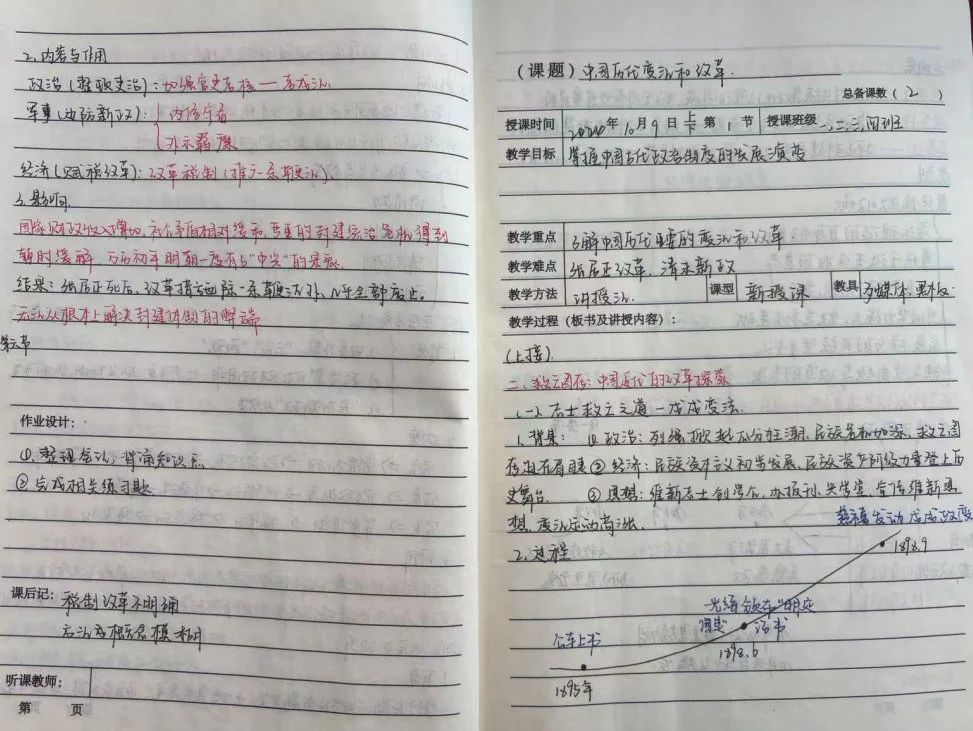 2.内容与作用
政治(整顿吏治):加强官吏考核—考成法.
军事(边防新政):内修守备
外示羁縻
经济(赋税改革):改革税制(推广一条鞭法).
3.影响.
国家财政收入增加,社会矛盾相对缓和,严重的封建统治危机得到
暂时缓解,万历初年明朝一度有了“中兴”的景象.
结果:张居正死后,改革措施除一条鞭法外,几乎全部废止.
无法从根本上解决封建体制的弊端
作业设计:
①整理笔记,背诵知识点
②完成相关练习题
课后记:税制改革不明确
方法与概念模糊
听课教师:
第 页
(课题)中国历代变法和改革.
总备课数(2)
授课时间 2020年10月9日 上/下 第1节 授课班级 一、二、三、四班
教学目标 掌握中国古代政治制度的发展演变
教学重点 了解中国历代重要的变法和改革.
教学难点 张居正改革、清末新政
教学方法 讲授法 课型 新授课 教具 多媒体、黑板.
教学过程(板书及讲授内容):
(上接).
二、救亡图存:中国近代的改革探索
(一)、志士救亡之道—戊戌变法.
1.背景:(1)政治:列强掀起瓜分狂潮,民族危机加深,救亡图
存迫在眉睫②经济:民族资本主义初步发展,民族资产阶级力量登上历
史舞台. ③思想:维新志士创学会,办报刊,兴学堂,宣传维新思
想,变法运动高涨.
慈禧发动戊戌政变
2.过程
1898.9
光绪颁布“明定
国是”诏书
1898.6
公车上书
1895年